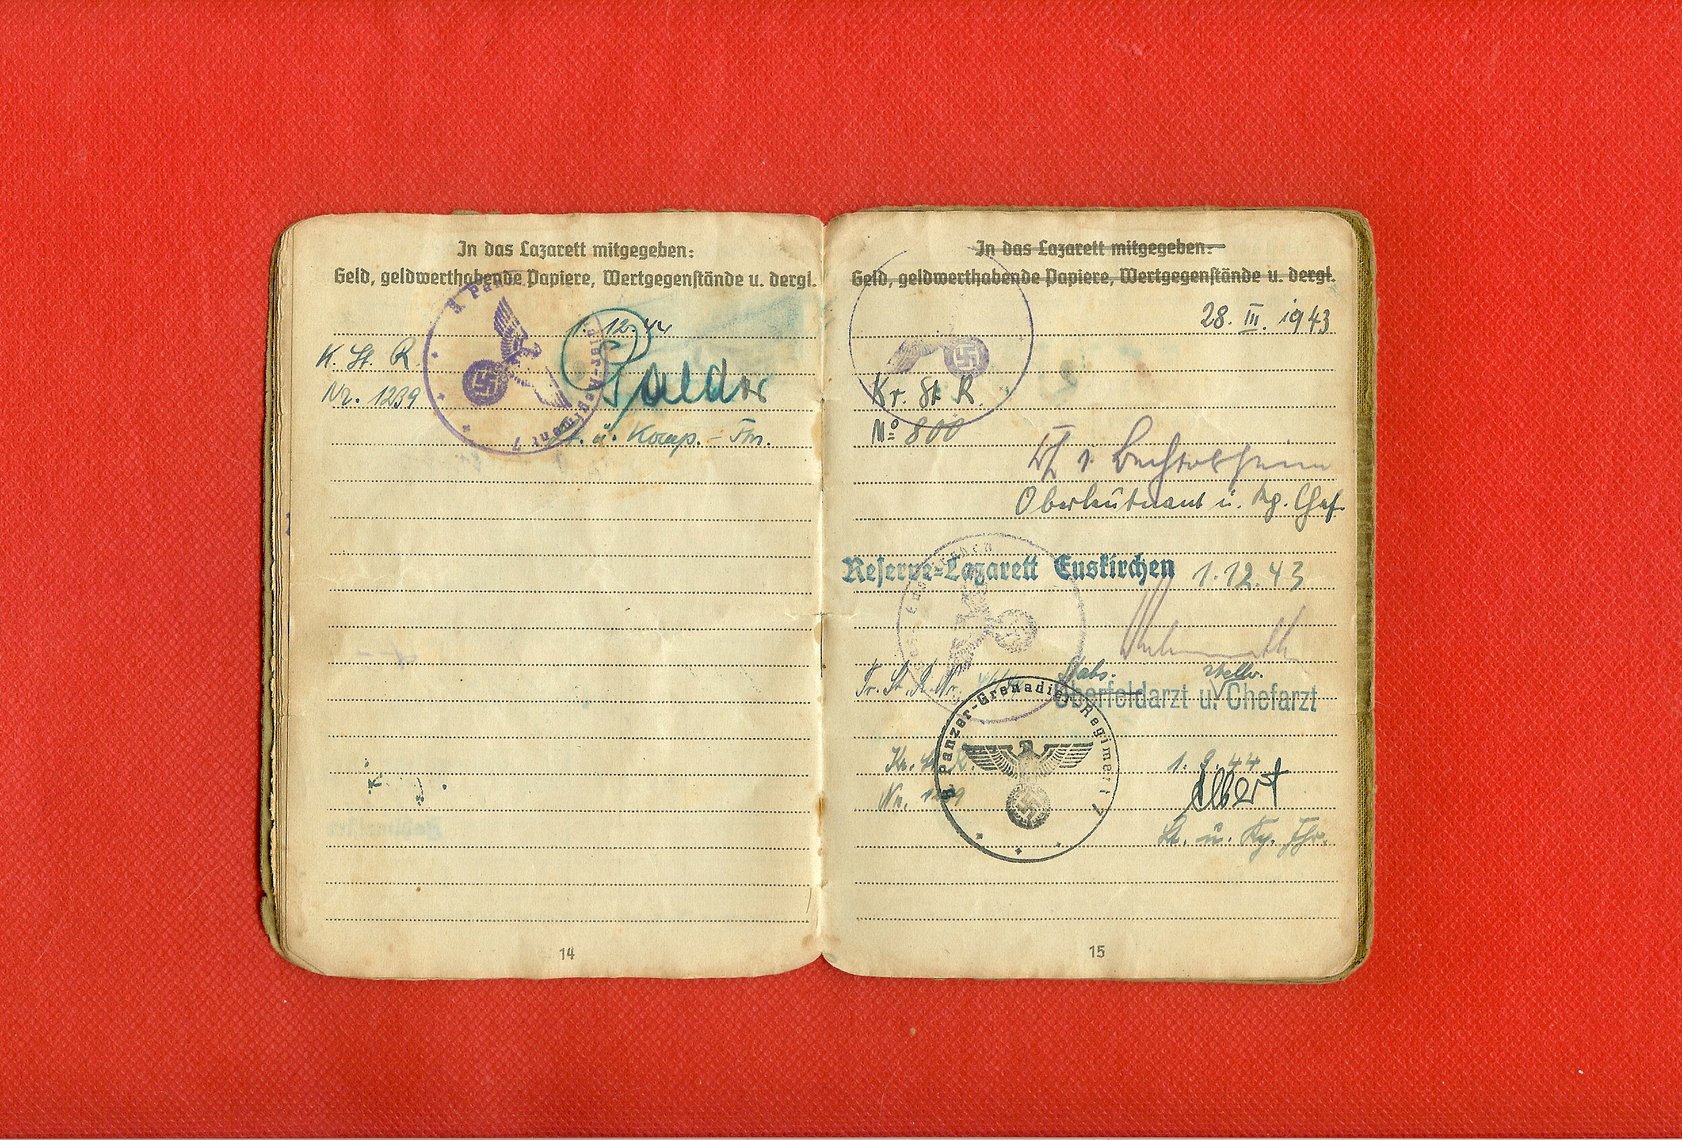 In das Lazarett mitgegeben:
Geld, geldwerthabende Papiere, Wertgegenstände u. dergl.
1. 12. 44
K. St. R.
Nr. 1239
u. Komp.-Fhr.
14
In das Lazarett mitgegeben:
Geld, geldwerthabende Papiere, Wertgegenstände u. dergl.
28. III. 1943
Kr. St. R.
No 800
Oberleutnant u. Kp. Chef
Reserve-Lazarett Euskirchen 1.12.43
Tr. St. R. Nr.
Stabs. stellv.
Oberfeldarzt u. Chefarzt
Panzer-Grenadier-Regiment 7
Kr. St. R. 1. 9. 44
Nr.
Albert
Lt. u. Kp. Fhr.
15